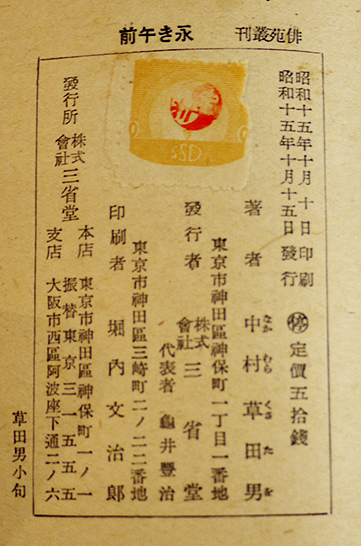 俳苑叢刊　永き午前
昭和十五年十月十日 印刷
昭和十五年十月十五日 發行
㊡ 定價五拾錢
著者 中村草田男
なか むら くさ た を
東京市神田區神保町一丁目一番地
發行者 株式會社 三省堂
代表者 龜井豐治
東京市神田區三崎町二ノ二二番地
印刷者 堀內文治郎
發行所 株式會社 三省堂
本店 東京市神田區神保町一ノ一
振替東京三一五五五
支店 大阪市西區阿波座下通二ノ六
草田男小句